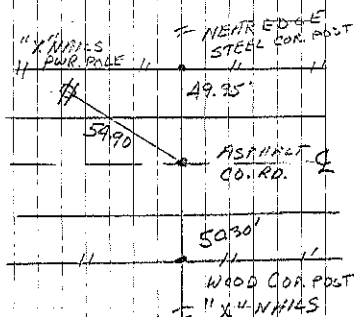 NEAR EDGE
STEEL COR. POST
"X" NAILS
PWR. POLE
49.95'
54.90
ASPHALT ℄
CO. RD.
50.30'
WOOD COR. POST
"X" NAILS